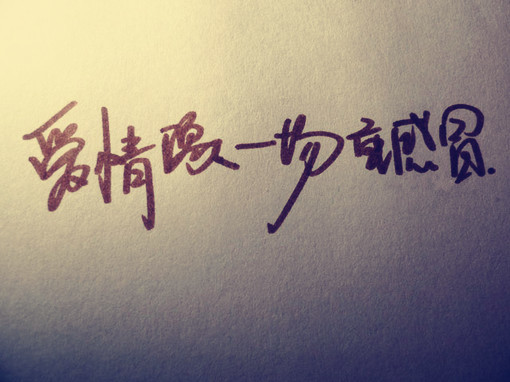 爱情像一场重感冒.